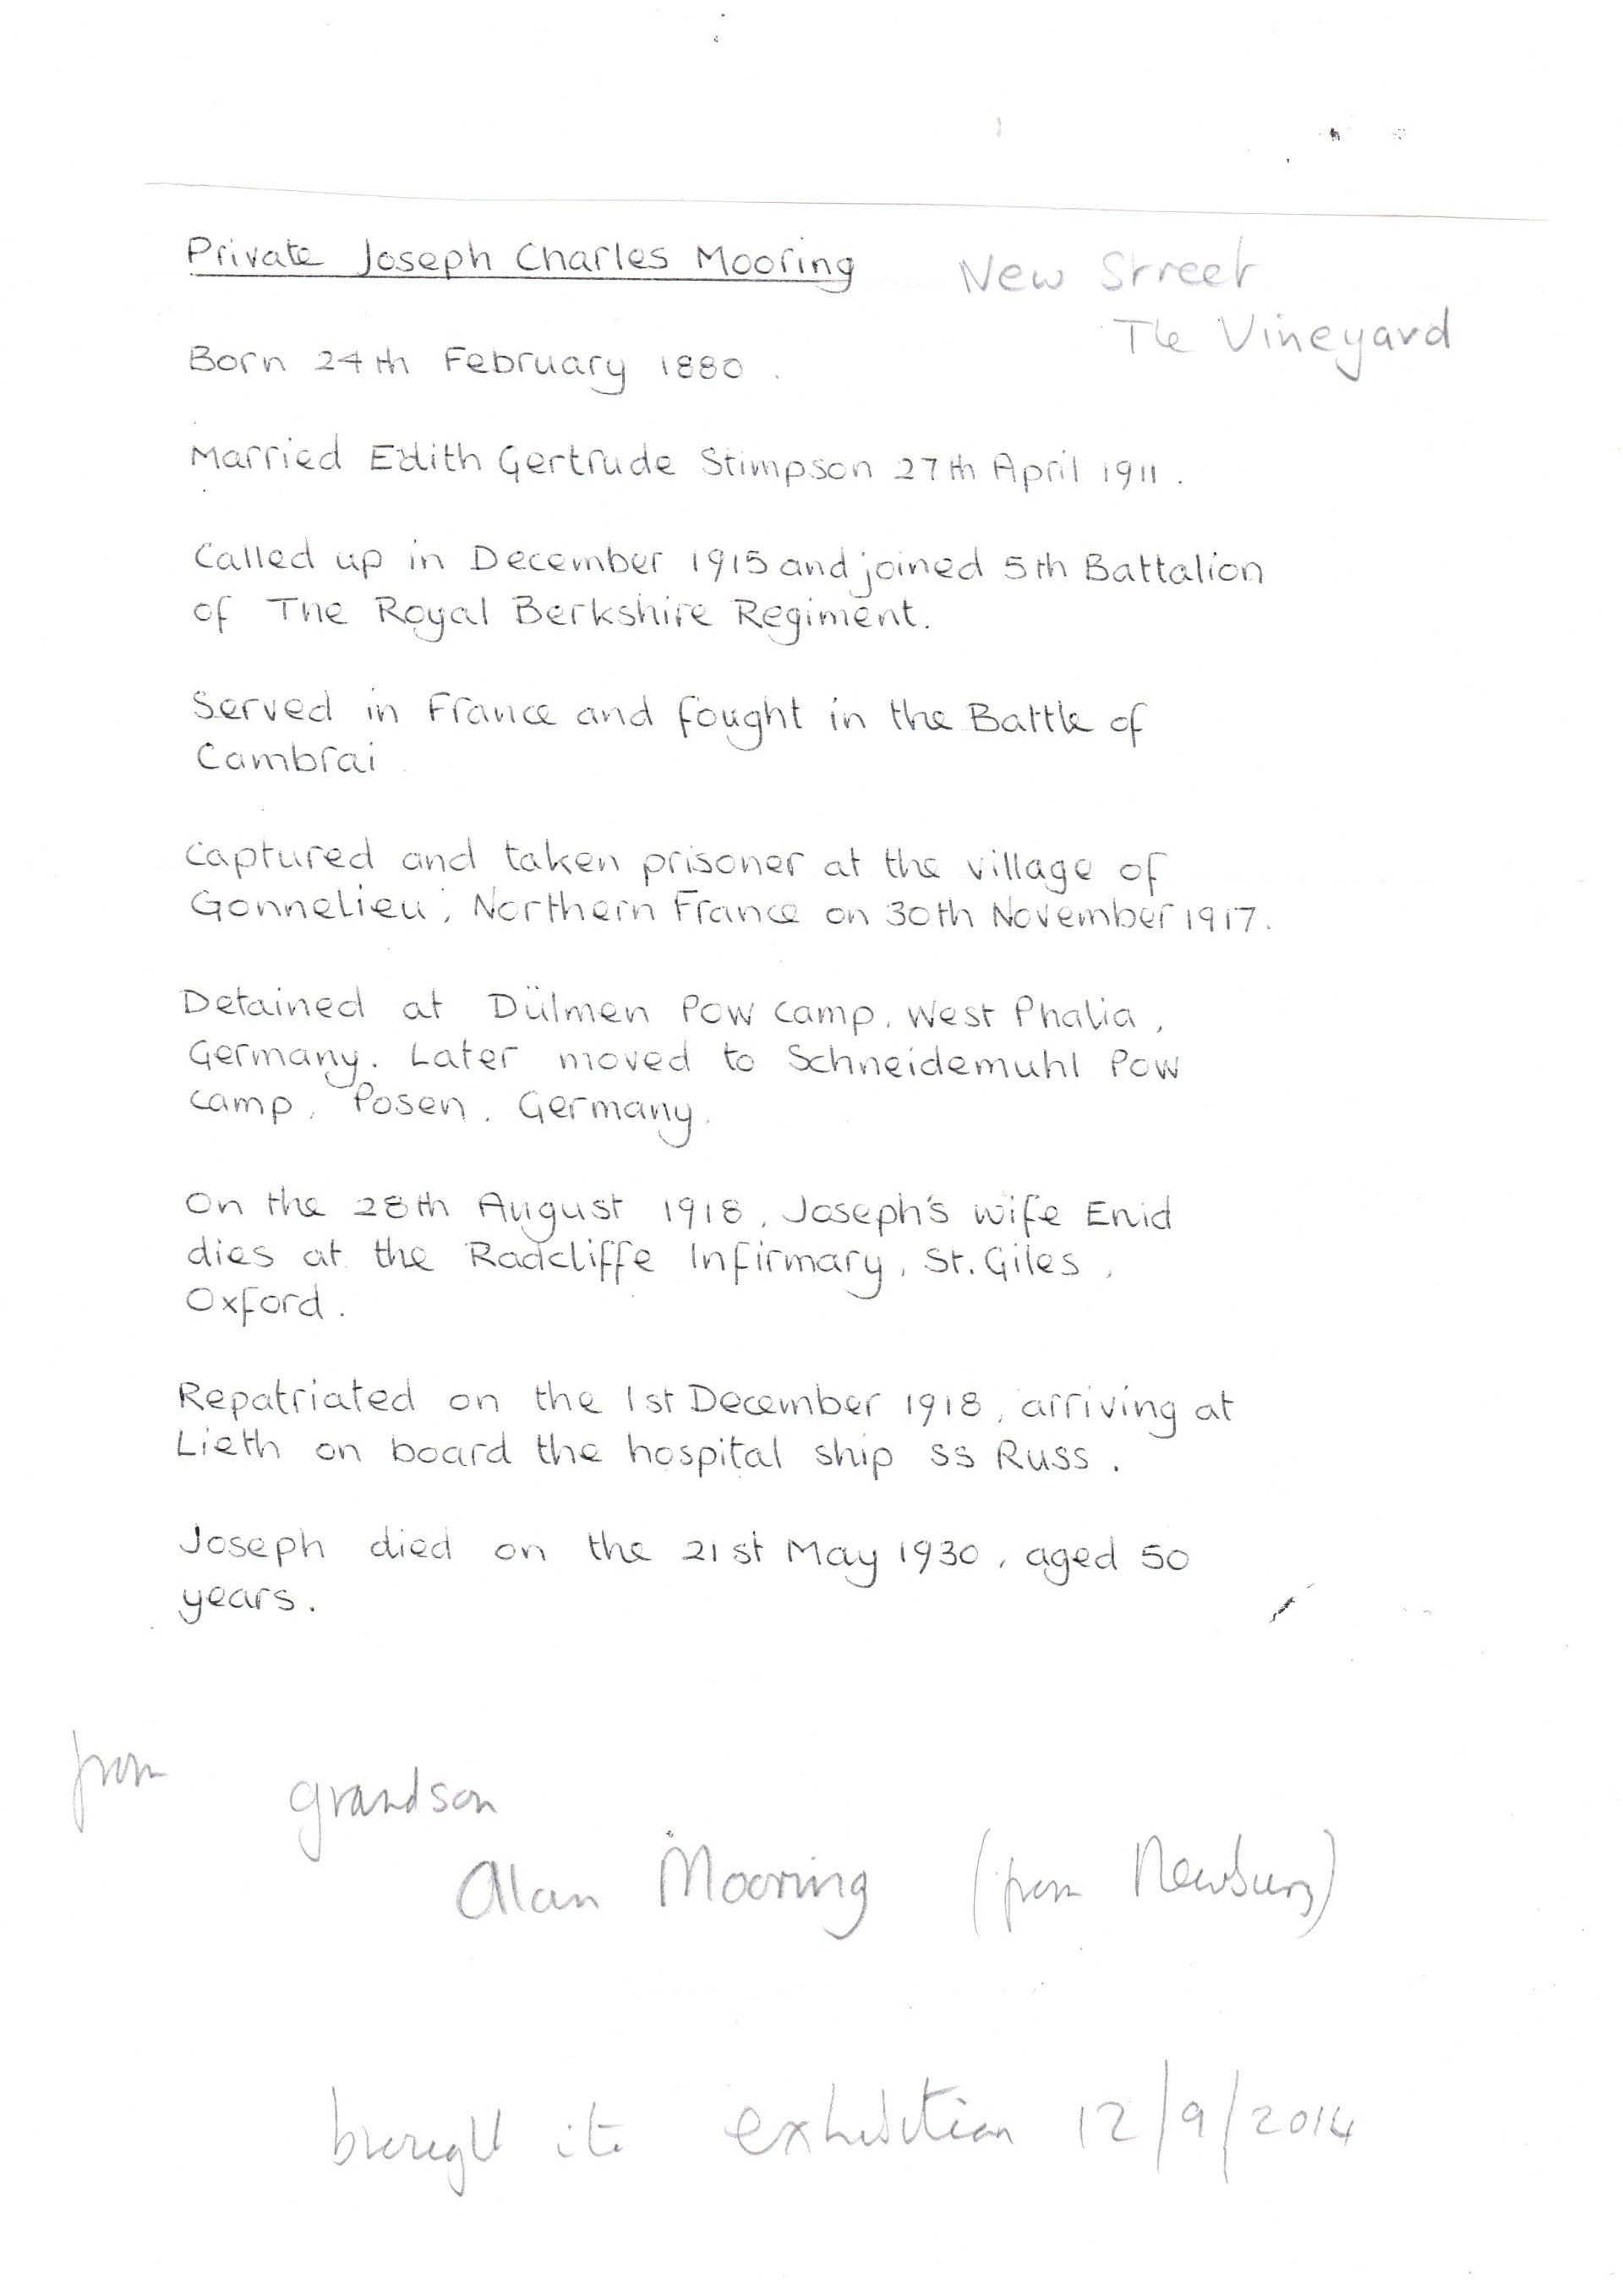 Private Joseph Charles Mooring
New Street
The Vineyard
Born 24th February 1880.
Married Edith Gertrude Stimpson 27th April 1911.
Called up in December 1915 and joined 5th Battalion
of The Royal Berkshire Regiment.
Served in France and fought in the Battle of
Cambrai
Captured and taken prisoner at the village of
Gonnelieu, Northern France on 30th November 1917.
Detained at Dülmen POW camp, West Phalia,
Germany. Later moved to Schneidemuhl POW
camp, Posen, Germany.
On the 28th August 1918, Joseph's wife Enid
dies at the Radcliffe Infirmary, St. Giles,
Oxford.
Repatriated on the 1st December 1918, arriving at
Lieth on board the hospital ship SS Russ.
Joseph died on the 21st May 1930, aged 50
years.
from
grandson
Alan Mooring (from Newbury)
brought it exhibition 12/9/2014